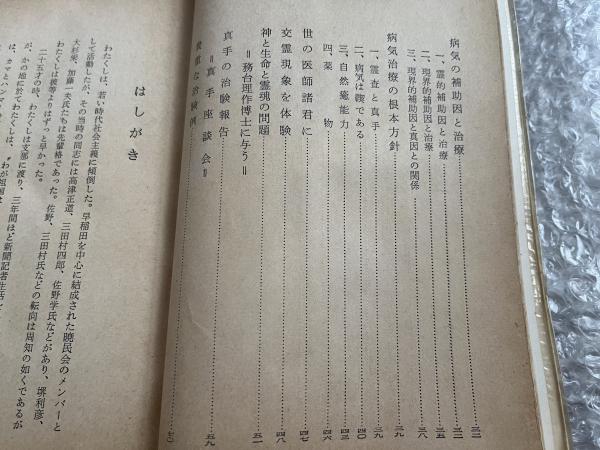 病気の補助因と治療……三二
一、霊的補助因と治療……三三
二、現界的補助因と治療……三五
三、現界的補助因と真因との関係……三八
病気治療の根本方針……三九
一、霊査と真手……三九
二、病気は鞭である……四〇
三、自然癒能力……四三
四、薬物……四六
世の医師諸君に……四七
交霊現象を体験……四八
神と生命と霊魂の問題
＝務台理作博士に与う＝……五一
真手の治験報告
＝真手座談会＝……五九
貴重な治験例……七〇
はしがき
わたくしは、若い時代社会主義に傾倒した。早稲田を中心に結成された暁民会のメンバーと
して活動したが、その当時の同志には高津正道、三田村四郎、佐野学氏などがあり、堺利彦、
大杉栄、加藤一夫氏たちは先輩格であった。佐野、三田村氏などの転向は周知の如くであるが
わたくしは彼等よりはずっと早かった。
二十五才の時、わたくしは支那に渡り、三年間ほど新聞記者生活
が、かの地に於てわたくしは、〝わが祖国
は、カマとハンマ